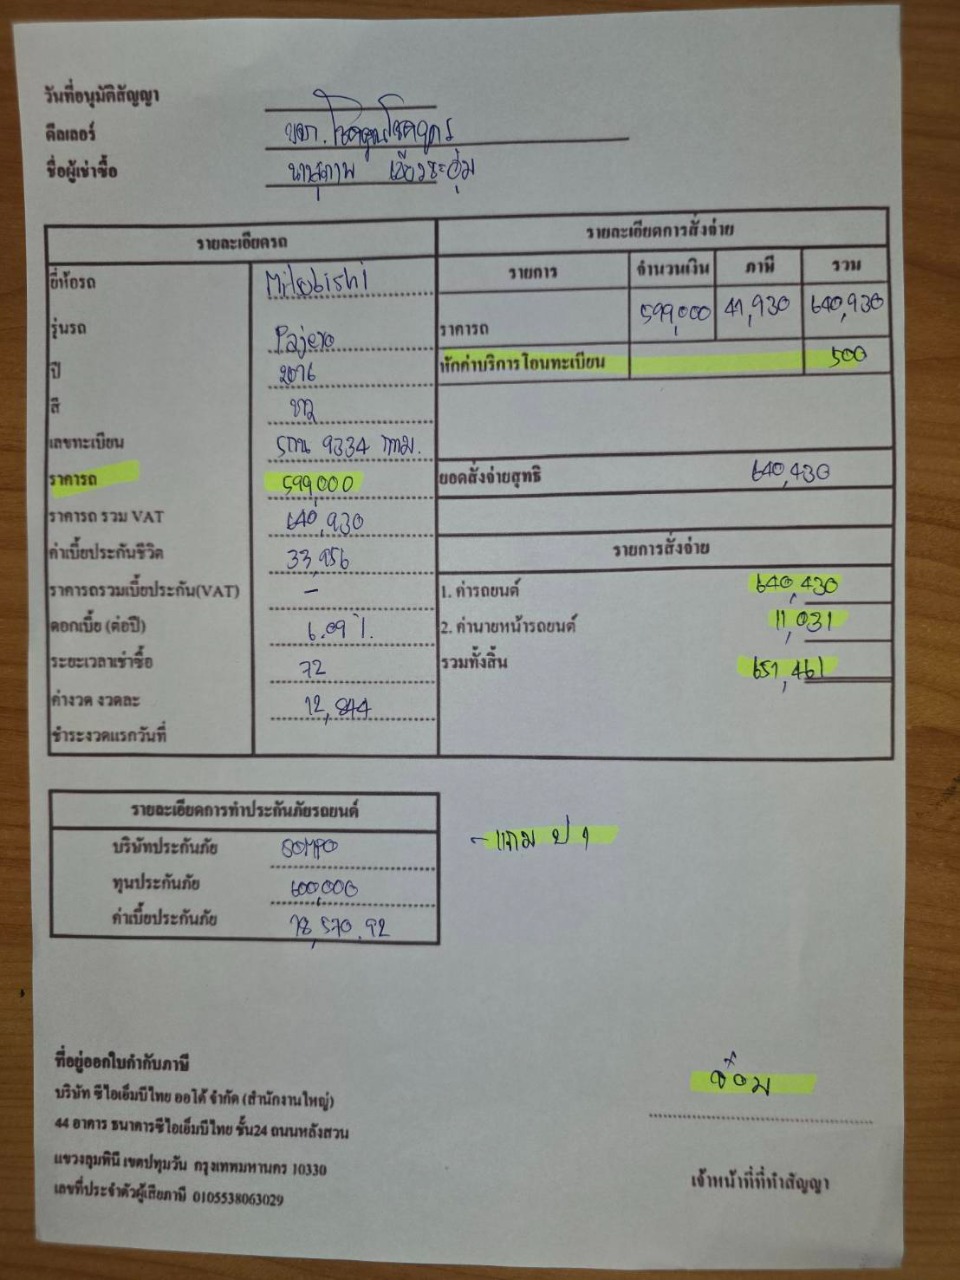 วันที่อนุมัติสัญญา
ดีลเลอร์ บจก. โชคคูณโชคจูกร
ชื่อผู้เช่าซื้อ นายสุภาพ
รายละเอียดรถ
ยี่ห้อรถ Mitsubishi
รุ่นรถ Pajero
ปี 2016
สี ขาว
เลขทะเบียน 9334 กทม.
ราคารถ 599,000
ราคารถ รวม VAT 640,930
ค่าเบี้ยประกันชีวิต 33,956
ราคารถรวมเบี้ยประกัน(VAT) -
ดอกเบี้ย (ต่อปี) 6.09 %
ระยะเวลาเช่าซื้อ 72
ค่างวด งวดละ 12,844
ชำระงวดแรกวันที่
รายละเอียดการสั่งจ่าย
รายการ จำนวนเงิน ภาษี รวม
ราคารถ 599,000 41,930 640,930
หักค่าบริการโอนทะเบียน 500
ยอดสั่งจ่ายสุทธิ 640,430
รายการสั่งจ่าย
1. ค่ารถยนต์ 640,430
2. ค่านายหน้ารถยนต์ 11,031
รวมทั้งสิ้น 651,461
รายละเอียดการทำประกันภัยรถยนต์
บริษัทประกันภัย SOMPO
ทุนประกันภัย 600,000
ค่าเบี้ยประกันภัย 18,570.92
- แถม ป 1
ที่อยู่ออกใบกำกับภาษี
บริษัท ซีไอเอ็มบีไทย ออโต้ จำกัด (สำนักงานใหญ่)
44 อาคาร ธนาคารซีไอเอ็มบีไทย ชั้น24 ถนนหลังสวน
แขวงลุมพินี เขตปทุมวัน กรุงเทพมหานคร 10330
เลขที่ประจำตัวผู้เสียภาษี 0105538063029
เจ้าหน้าที่ที่ทำสัญญา